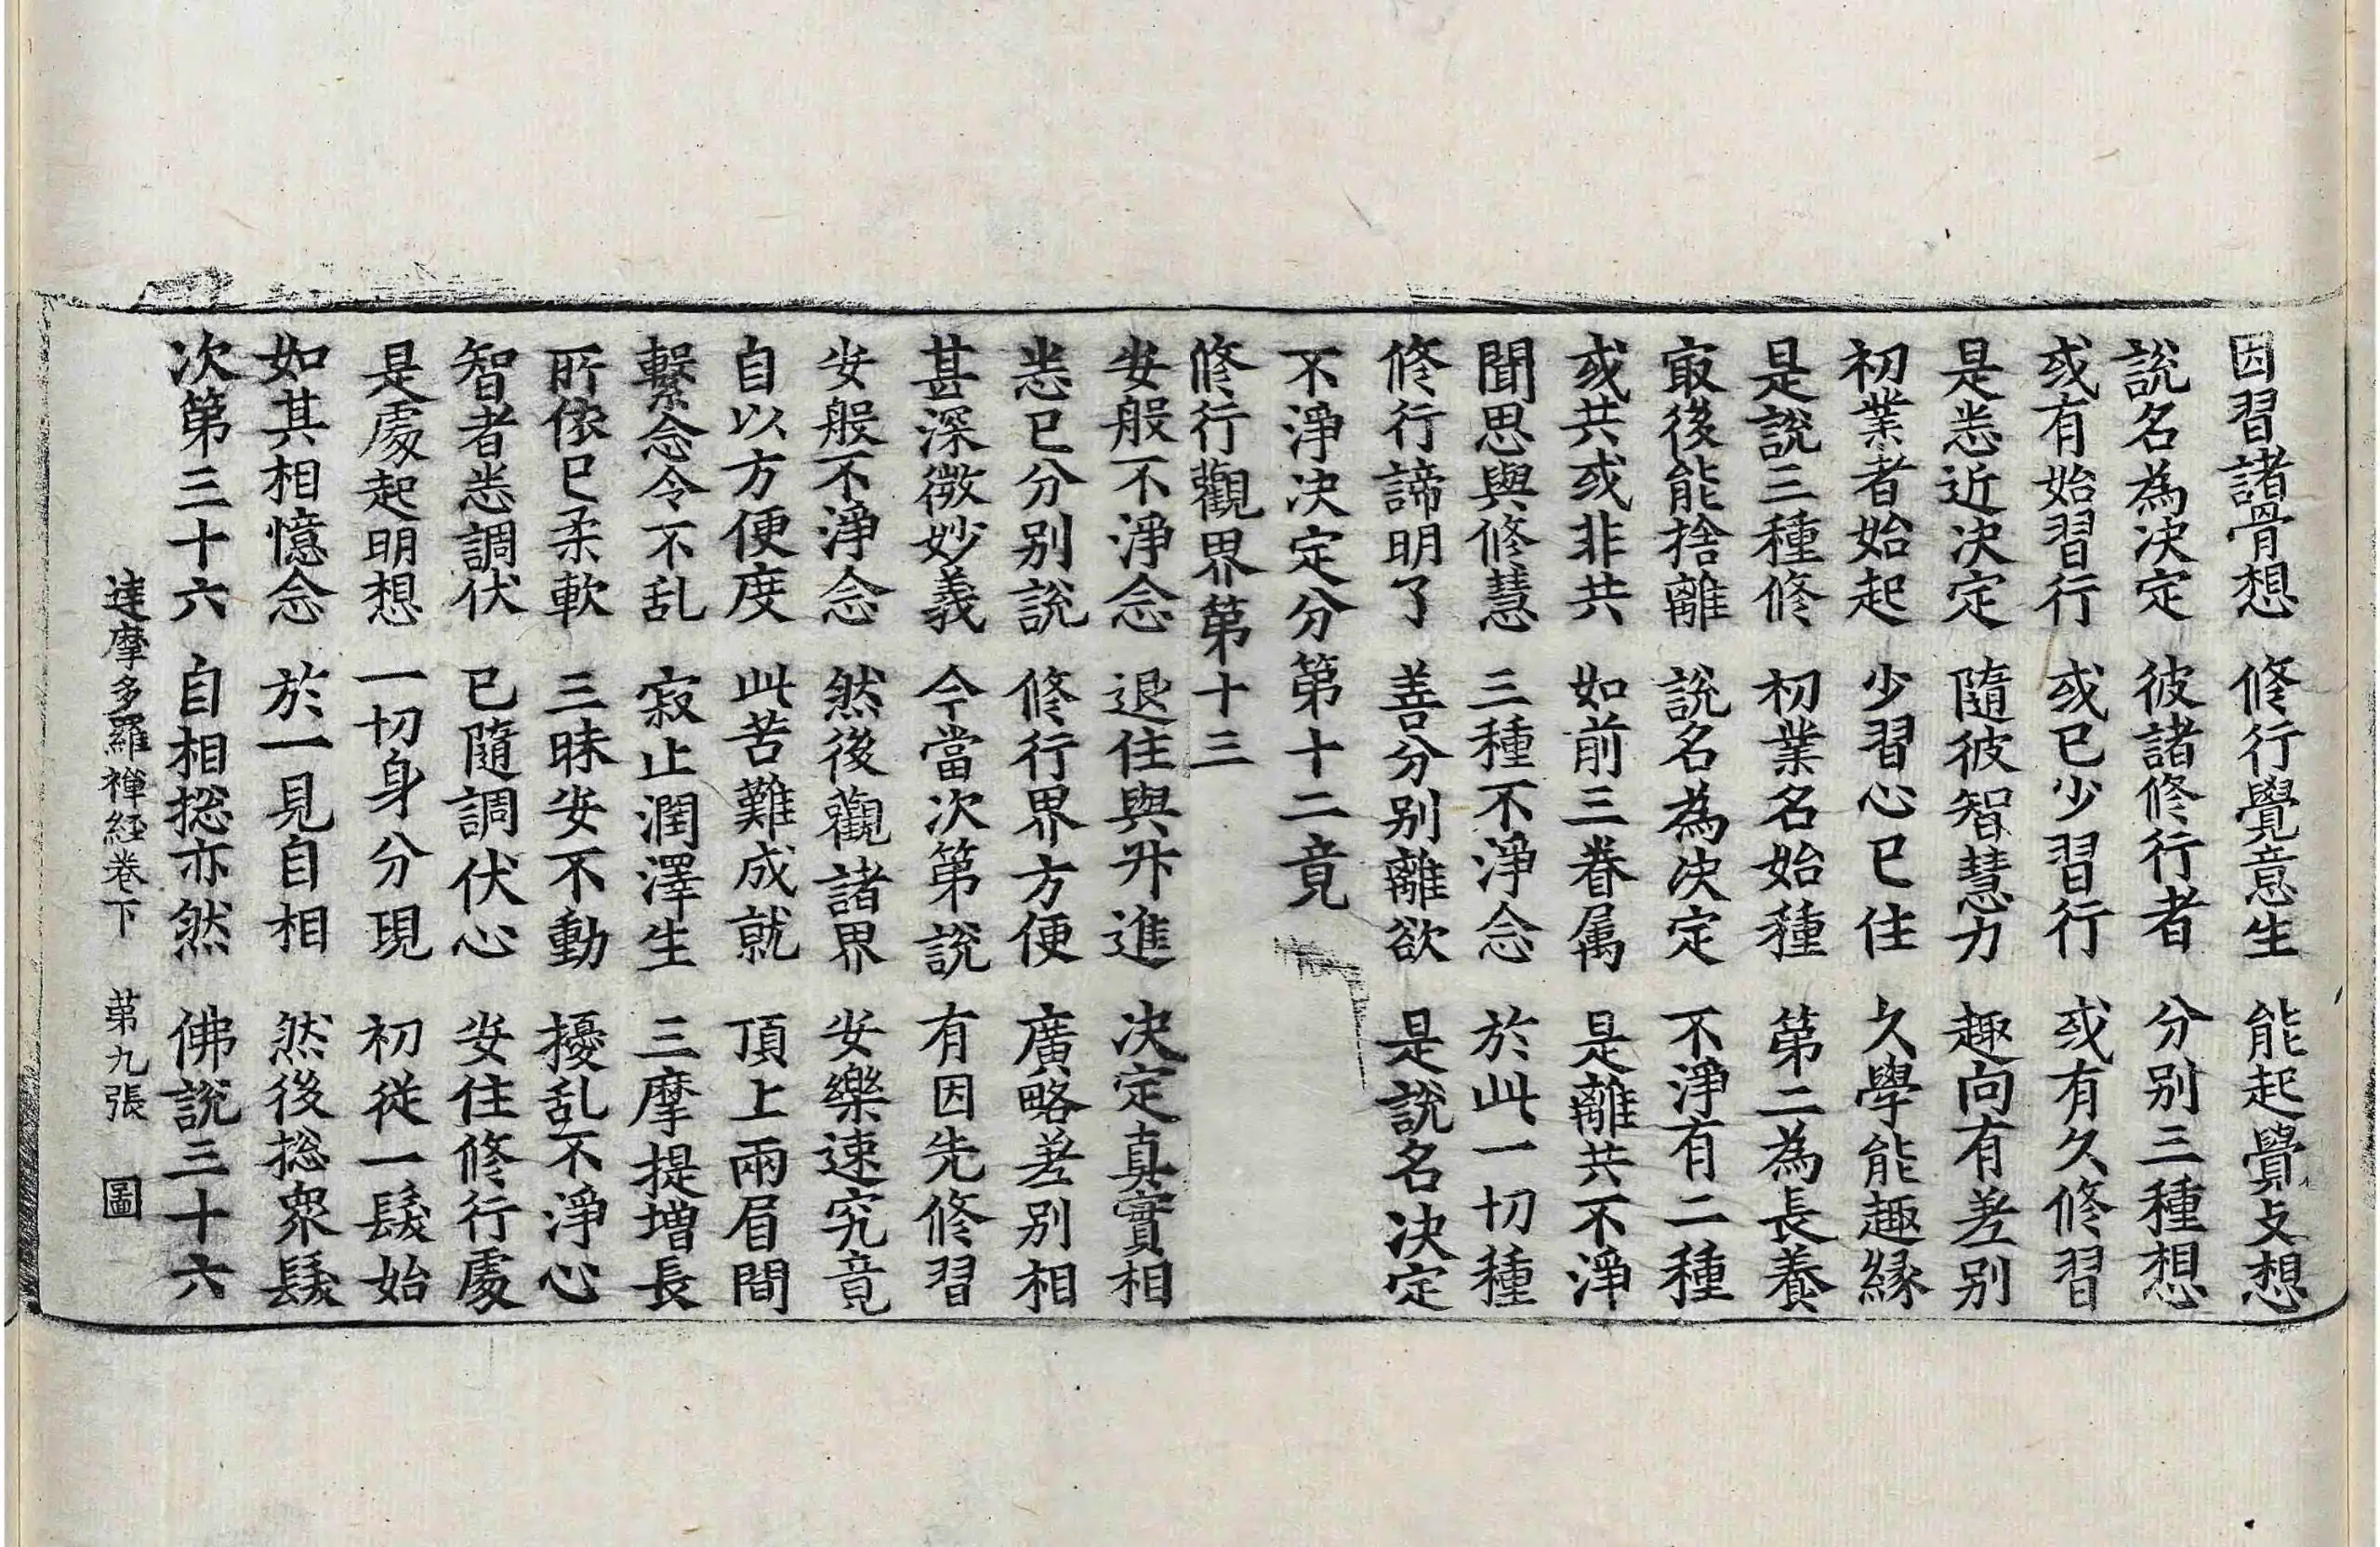 因習諸骨想 修行覺意生 能起覺支想
說名為決定 彼諸修行者 分別三種想
或有始習行 或已少習行 或有久修習
是悉近決定 隨彼智慧力 趣向有差別
初業者始起 少習心已住 久學能趣緣
是說三種修 初業名始種 第二為長養
㝡後能捨離 說名為決定 不淨有二種
或共或非共 如前三眷属 是離共不淨
聞思與修慧 三種不淨念 於此一切種
修行諦明了 善分別離欲 是說名決定
不淨決定分第十二竟
修行觀界第十三
安般不淨念 退住與升進 決定真實相
悉已分別說 修行界方便 廣略差別相
甚深微妙義 今當次第說 有因先修習
安般不淨念 然後觀諸界 安樂速究竟
自以方便度 此苦難成就 頂上兩眉間
繫念令不乱 寂止潤澤生 三摩提增長
所依已柔軟 三昧安不動 擾乱不淨心
智者悉調伏 已隨調伏心 安住修行處
是處起明想 一切身分現 初從一髮始
如其相憶念 於一見自相 然後捴眾髮
次第三十六 自相捴亦然 佛說三十六
達摩多羅禪経卷下 第九張 圖